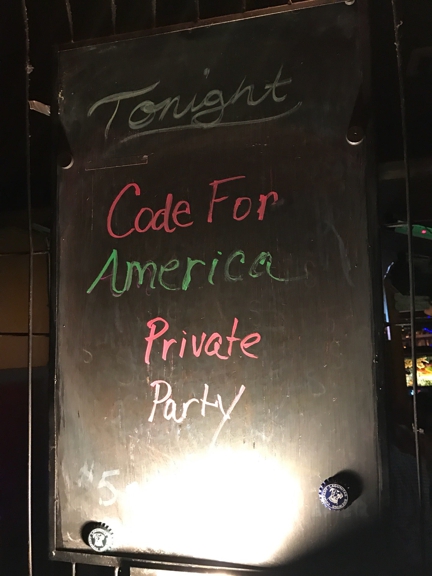 Tonight
Code For
America
Private
Party